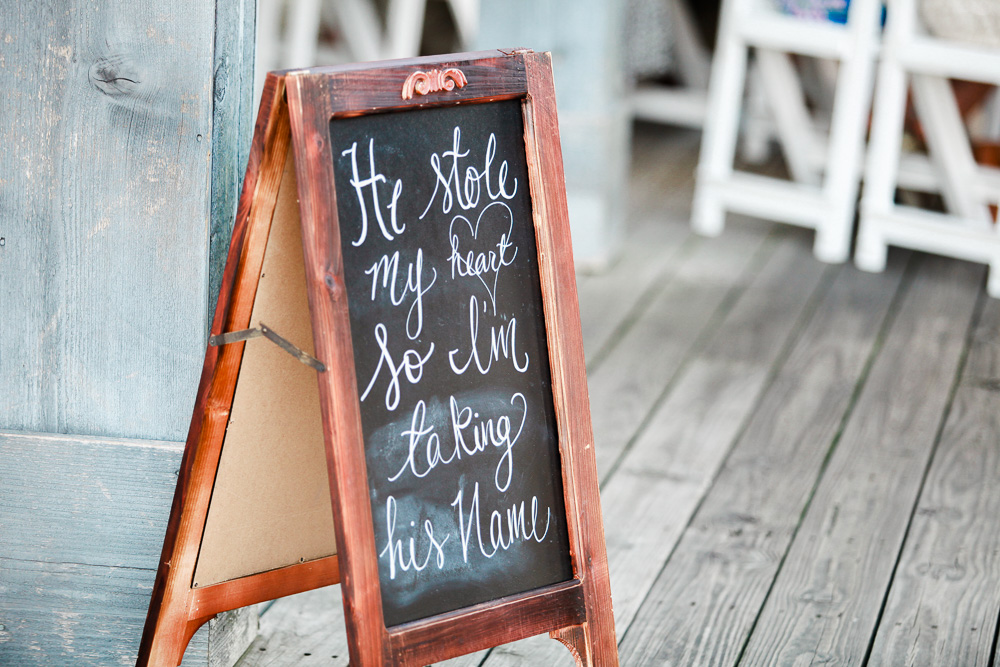 He stole
my heart
so I'm
taking
his Name